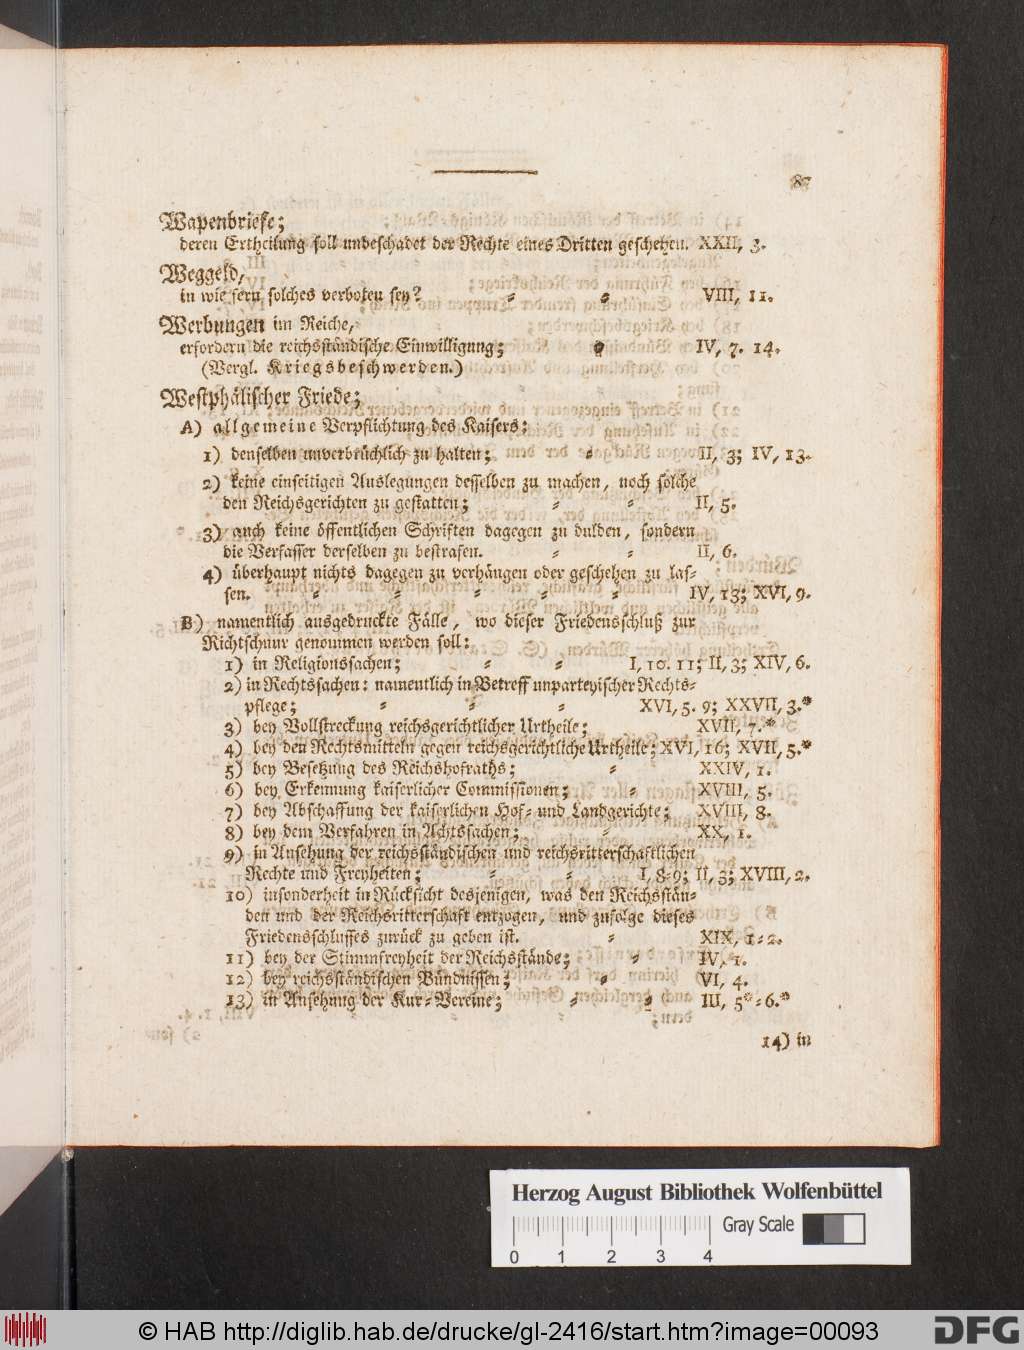 87
Wapenbriefe;
deren Ertheilung soll unbeschadet der Rechte eines Dritten geschehen. XXII, 3.
Weggeld,
in wie fern solches verboten sey? = = VIII, 11.
Werbungen im Reiche,
erfordern die reichsständische Einwilligung; = IV, 7. 14.
(Vergl. Kriegsbeschwerden.)
Westphälischer Friede;
A) allgemeine Verpflichtung des Kaisers:
1) denselben unverbrüchlich zu halten; = II, 3; IV, 13.
2) keine einseitigen Auslegungen desselben zu machen, noch solche
den Reichsgerichten zu gestatten; = = II, 5.
3) auch keine öffentlichen Schriften dagegen zu dulden, sondern
die Verfasser derselben zu bestrafen. = = II, 6.
4) überhaupt nichts dagegen zu verhängen oder geschehen zu las=
sen. = = = = = IV, 13; XVI, 9.
B) namentlich ausgedruckte Fälle, wo dieser Friedensschluß zur
Richtschnur genommen werden soll:
1) in Religionssachen; = = I, 10. 11; II, 3; XIV, 6.
2) in Rechtssachen: namentlich in Betreff unparteyischer Rechts=
pflege; = = = XVI, 5. 9; XXVII, 3.*
3) bey Vollstreckung reichsgerichtlicher Urtheile; XVII, 7.*
4) bey den Rechtsmitteln gegen reichsgerichtliche Urtheile; XVI, 16; XVII, 5.*
5) bey Besetzung des Reichshofraths; = XXIV, 1.
6) bey Erkennung kaiserlicher Commissionen; = XVIII, 5.
7) bey Abschaffung der kaiserlichen Hof= und Landgerichte; XVIII, 8.
8) bey dem Verfahren in Achtssachen; = XX, 1.
9) in Ansehung der reichsständischen und reichsritterschaftlichen
Rechte und Freyheiten; = = I, 8=9; II, 3; XVIII, 2.
10) insonderheit in Rücksicht desjenigen, was den Reichsstän=
den und der Reichsritterschaft entzogen, und zufolge dieses
Friedensschlusses zurück zu geben ist. = XIX, 1=2.
11) bey der Stimmfreyheit der Reichsstände; = IV, 1.
12) bey reichsständischen Bündnissen; = VI, 4.
13) in Ansehung der Kur=Vereine; = = III, 5*=6.*
14) in
Herzog August Bibliothek Wolfenbüttel
Gray Scale
0 1 2 3 4
© HAB http://diglib.hab.de/drucke/gl-2416/start.htm?image=00093
DFG